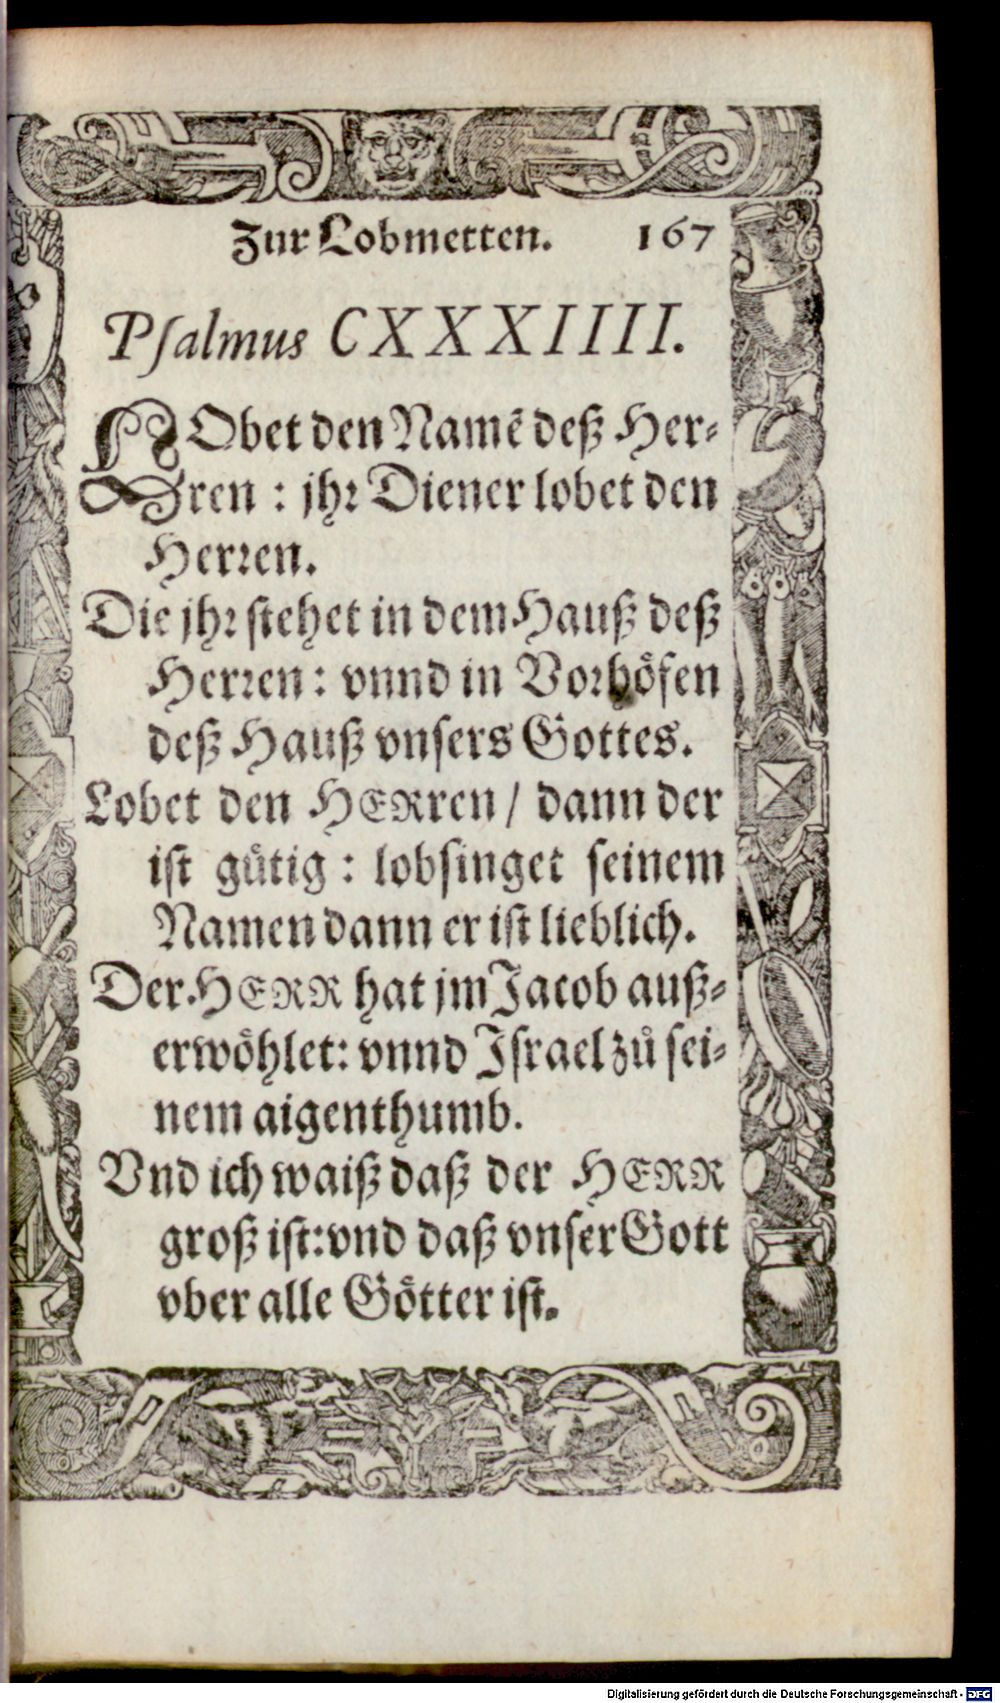 Zur Lobmetten. 167
Psalmus CXXXIIII.
LObet den Namē deß Her-
ren : jhr Diener lobet den
Herren.
Die jhr stehet in dem Hauß deß
Herren: vnnd in Vorhöfen
deß Hauß vnsers Gottes.
Lobet den HERren / dann der
ist gütig : lobsinget seinem
Namen dann er ist lieblich.
Der HERR hat jm Jacob auß-
erwöhlet: vnnd Israel zů sei-
nem aigenthumb.
Vnd ich waiß daß der HERR
groß ist: vnd daß vnser Gott
vber alle Götter ist.
Digitalisierung gefördert durch die Deutsche Forschungsgemeinschaft - DFG